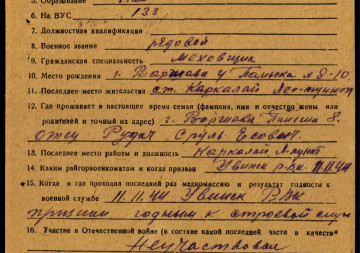 5. Образование
6. На ВУС 133
7. Должностная квалификация
8. Военное звание рядовой
9. Гражданская специальность меховщик
10. Место рождения г. Варшава у Польска 8-10
11. Последнее место жительства ст. Каркалай Лес-пункт
12. Где проживает в настоящее время семья (фамилия, имя и отчество жены или
родителей и точный их адрес) г. Варшава 8.
Отец Рудич Сруль Есович.
13. Последнее место работы и должность Каркалай Л-пункт
14. Каким райгорвоенкоматом и когда призван Увинск РВК 11.11.41
15. Когда и где проходил последний раз медкомиссию и результат годности к
военной службе 11.11.41 Увинск РВК
признан годным к строевой службе
16. Участие в Отечественной войне (в составе какой последней части в качестве
Неучаствовал